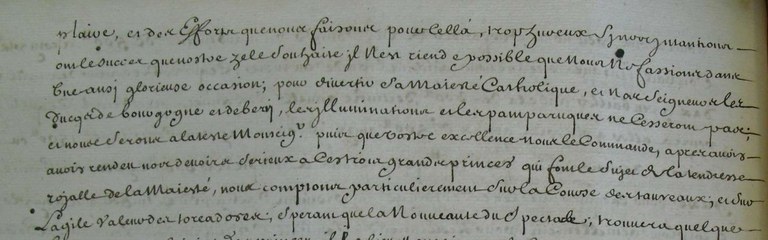 plaire, et des Efforts que nous faisons pour cella, trop heureux sy nos intantions
ont le succez que nostre zele souhaite; il n'est rien de possible que nous ne fassions dans
une ausi glorieuse occasion; pour divertir sa Maiesté Catholique, et Nosseigneurs les
Ducqs de bourgogne et de beri, les illuminations et les pamparuques ne cesseront pas;
et nous serons a la teste Monseigr puis que vostre excellence nous le Commande, apres avoir
rendeu nos devoirs serieux a ces trois grands princes qui font le sujet de la tendresse
rojalle de la Maiesté, nous comptons particulierement sur la Course des taureaux, et sur
L'agile valeur des toreadores, esperant que la Nouveauté du Spectacle, trouvera quelque